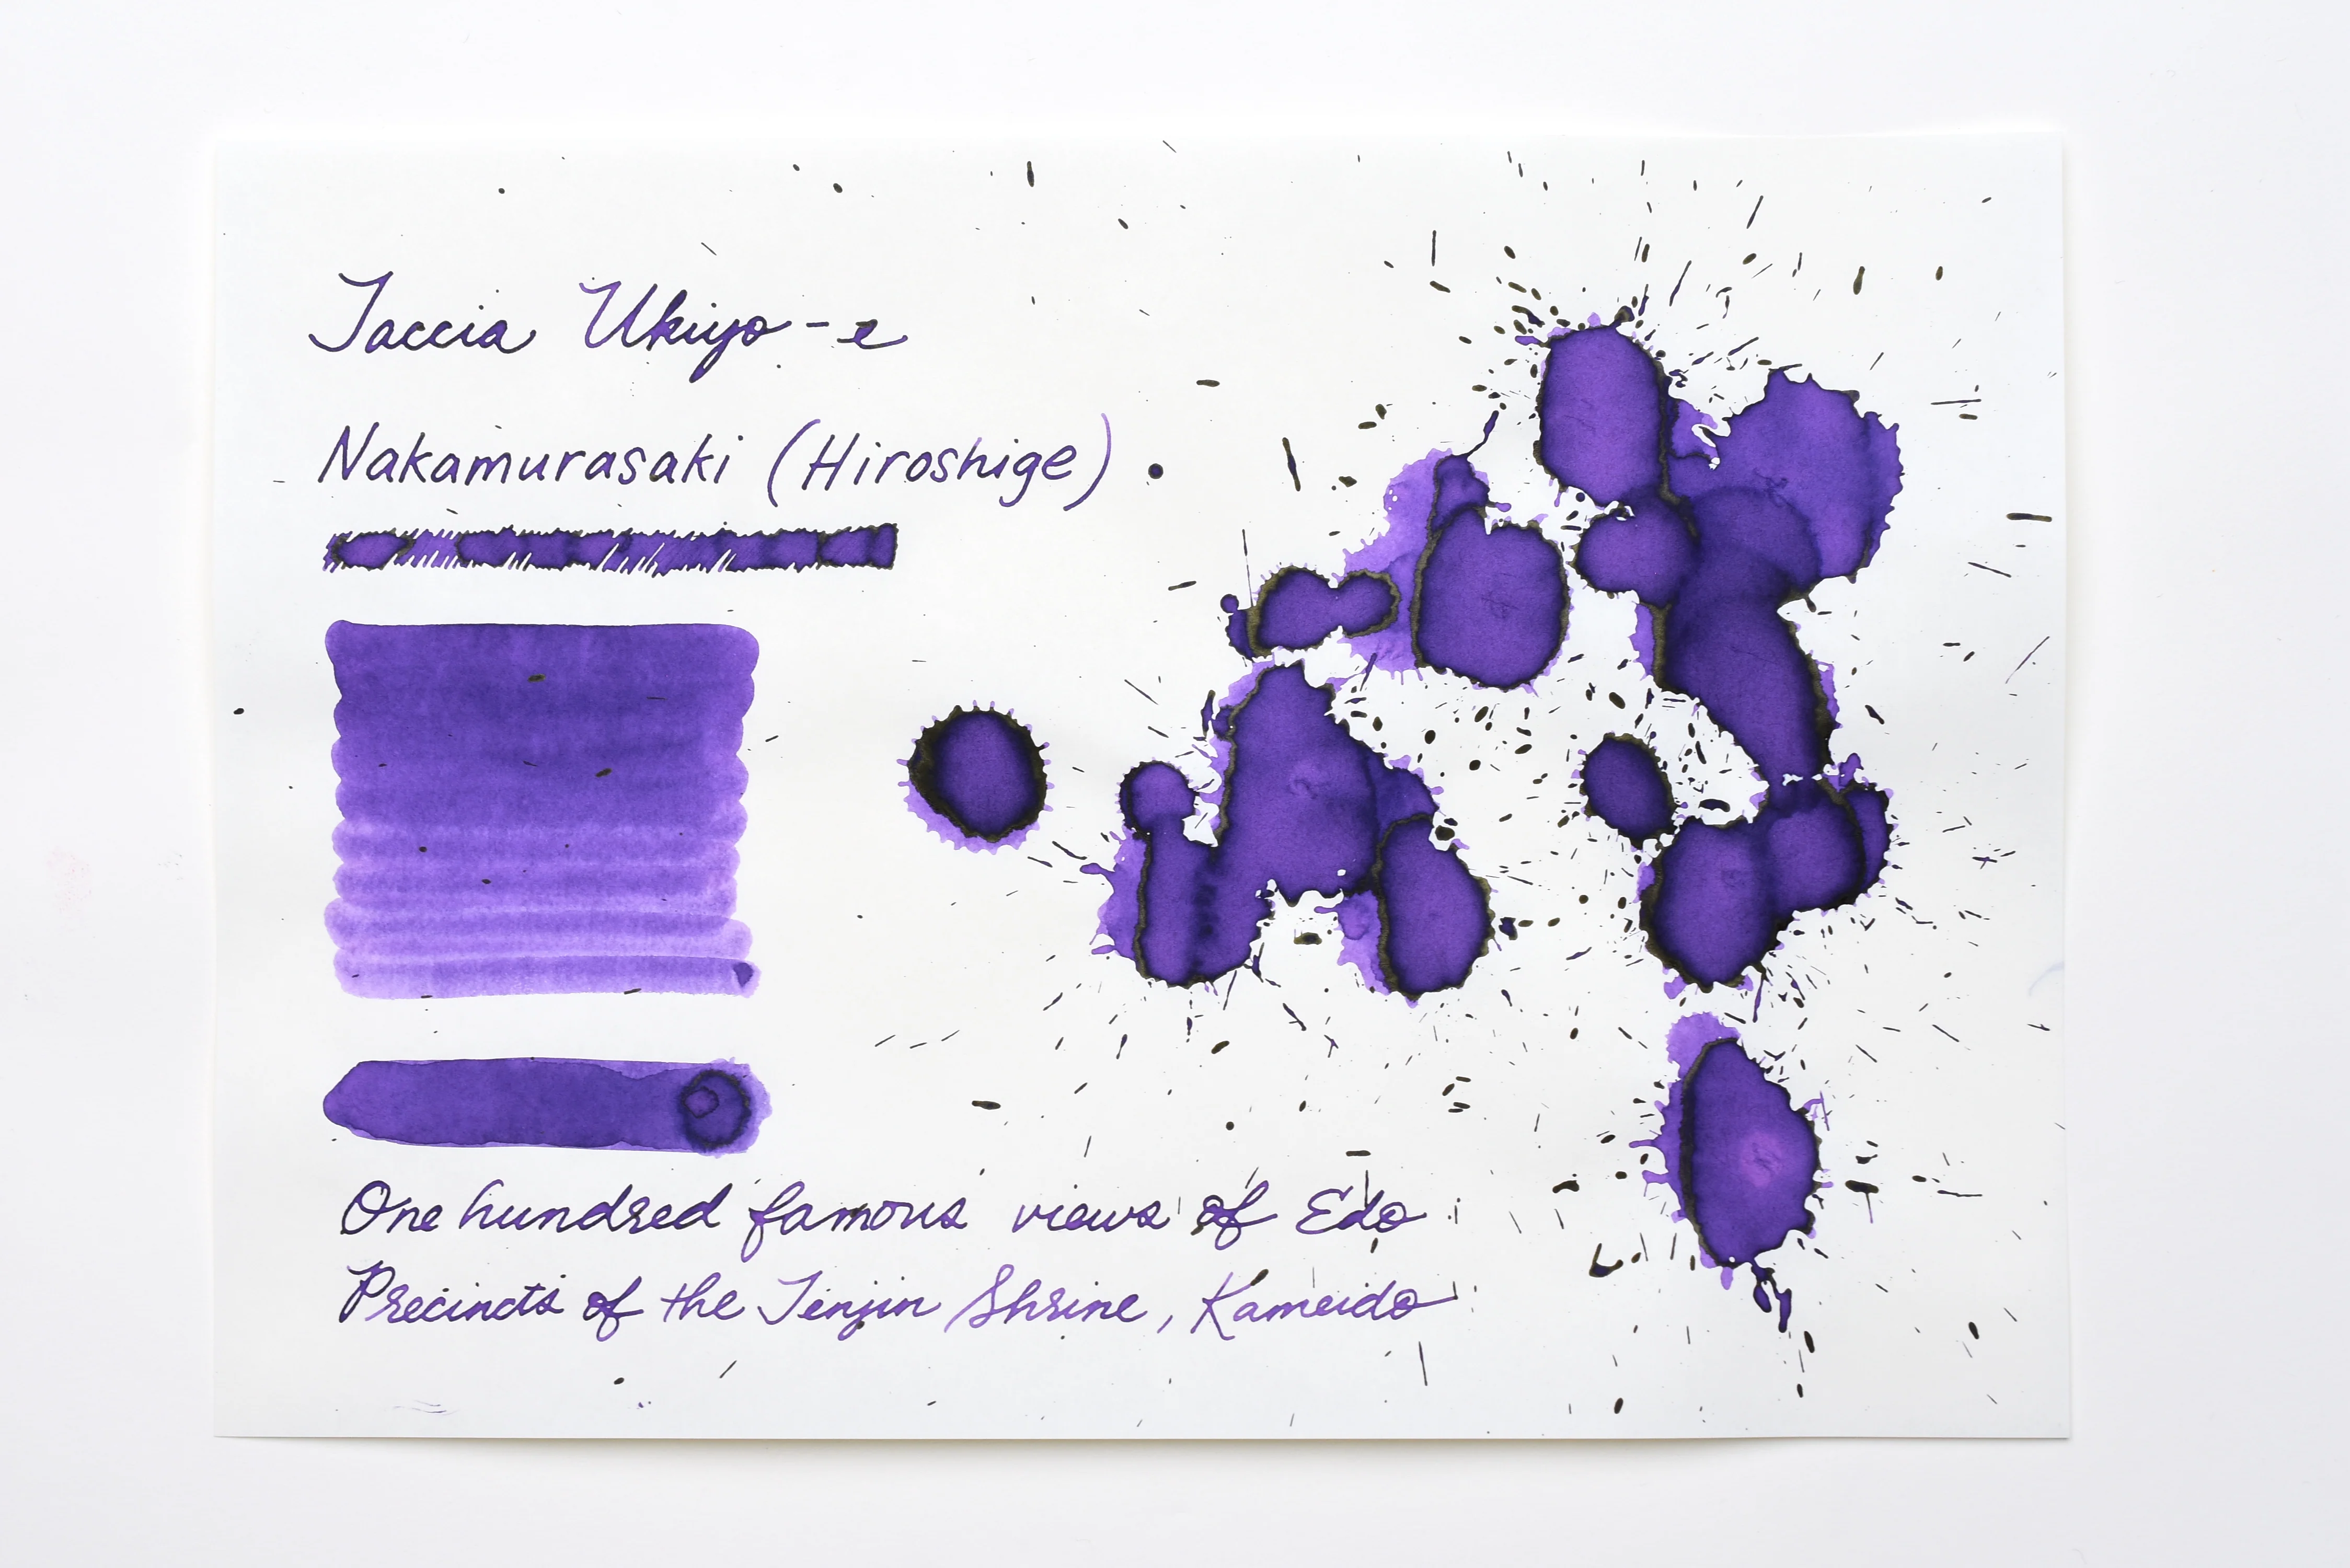 Taccia Ukiyo-e
Nakamurasaki (Hiroshige)
One hundred famous views of Edo
Precincts of the Tenjin Shrine, Kameido